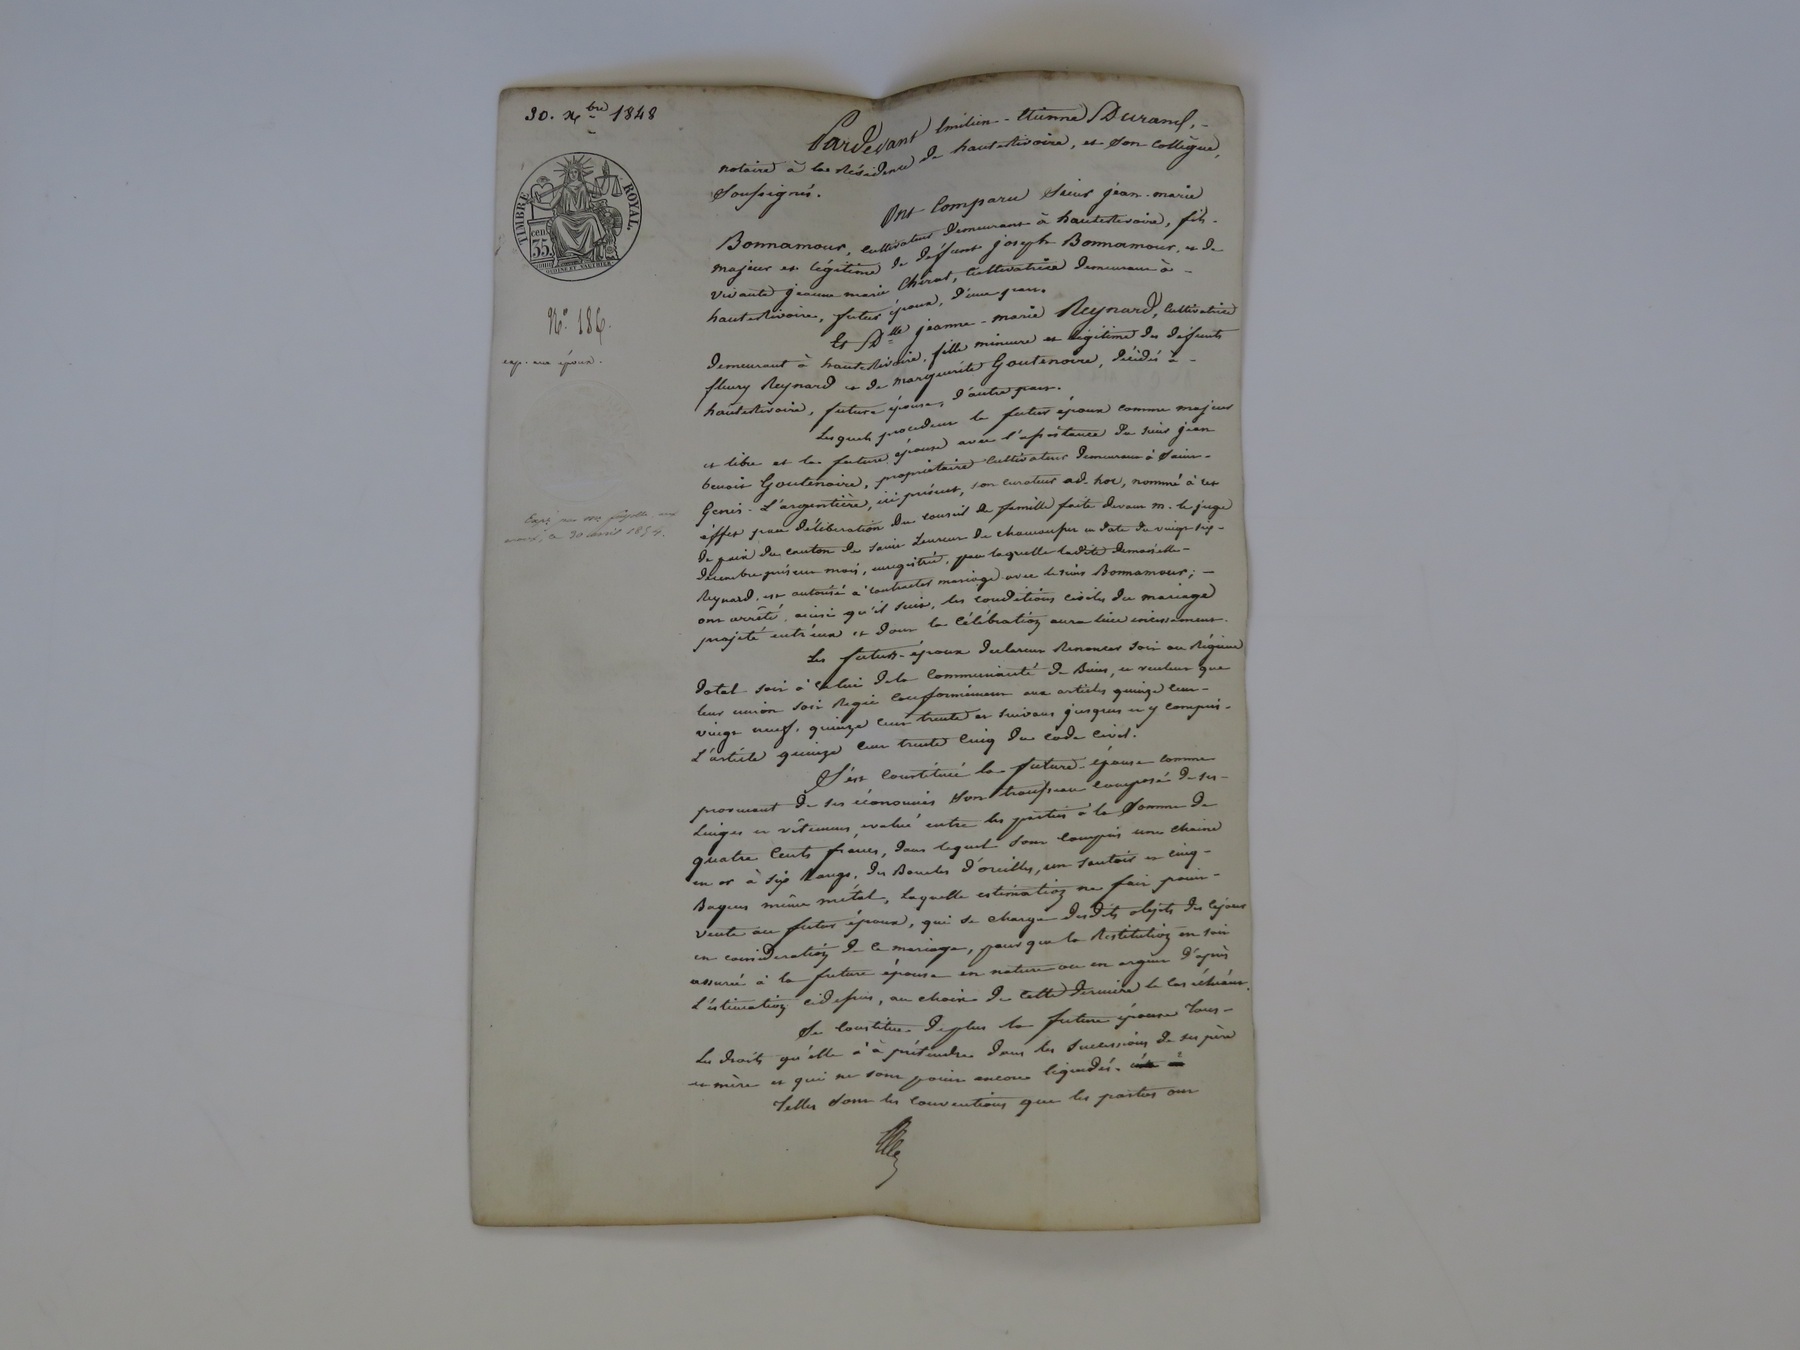 30. Xbre 1848
TIMBRE ROYAL.
cen
35.
N° 186.
exp. aux époux.
30 avril 1854.
Pardevant Emilien-Etienne Durand,
notaire à la Résidence de hauterivoire, et son collègue,
Soussignés.
Ont Comparu Sieur jean-marie
Bonnamour, cultivateur demeurant à hauterivoire, fils
majeur et légitime de deffunt joseph Bonnamour, et de
vivante jeanne marie Chirat, Cultivatrice demeurant à
hauterivoire, futur époux, d'une part.
Et Dlle jeanne-marie Reynard, Cultivatrice
demeurant à hauterivoire, fille mineure et légitime des deffunts
fleury Reynard et de marguerite Goutenoire, décédés à
hauterivoire, future épouse, d'autre part.
Lesquels procedent le futur époux comme majeur
et libre et la future épouse avec l'assistance du sieur jean
benoit Goutenoire, propriétaire Cultivateur demeurant à Saint-
Genis-L'argentière, ici présent, son curateur ad-hoc, nommé à cet
effet par délibération du conseil de famille faite devant m. le juge
de paix du canton de Saint Laurent de chamousset en date du vingt six
décembre présent mois, enregistrée, par laquelle ladite demoiselle
Reynard, est autorisé à contracter mariage avec le sieur Bonnamour;
ont arrêté, ainsi qu'il suit, les conditions civiles du mariage
projeté entr'eux et dont la Célébration aura lieu incessamment.
Les futurs-époux declarent Renoncer soit au Régime
dotal soit à Celui de la Communauté de Biens, et veulent que
leur union soit Régie Conformément aux articles quinze cent
vingt neuf, quinze cent trente et suivans jusques et y compris
L'article quinze cent trente Cinq du code civil.
S'est Constitué la future-épouse comme
provenant de ses économies Son trousseau Composé de ses
Linges et vêtemens, evalué entre les parties à la Somme de
quatre Cents francs, dans lequel sont Compris une chaine
en or à six Rangs, des Boucles d'oreilles, un sautoir et cinq
Bagues même métal, Laquelle estimation ne fait point
vente au futur époux, qui se charge desdits objets dès cejour
en considération de ce mariage, pour que la Restitution en soit
assurée à la future épouse en nature ou en argent d'après
L'estimation cidessus, au choix de Cette dernière le cas échéant.
Se Constitue deplus la future épouse Tous
Les droits qu'elle a à prétendre dans les Successions de ses père
et mère et qui ne sont point encore liquidés.
Telles sont les Conventions que les parties ont